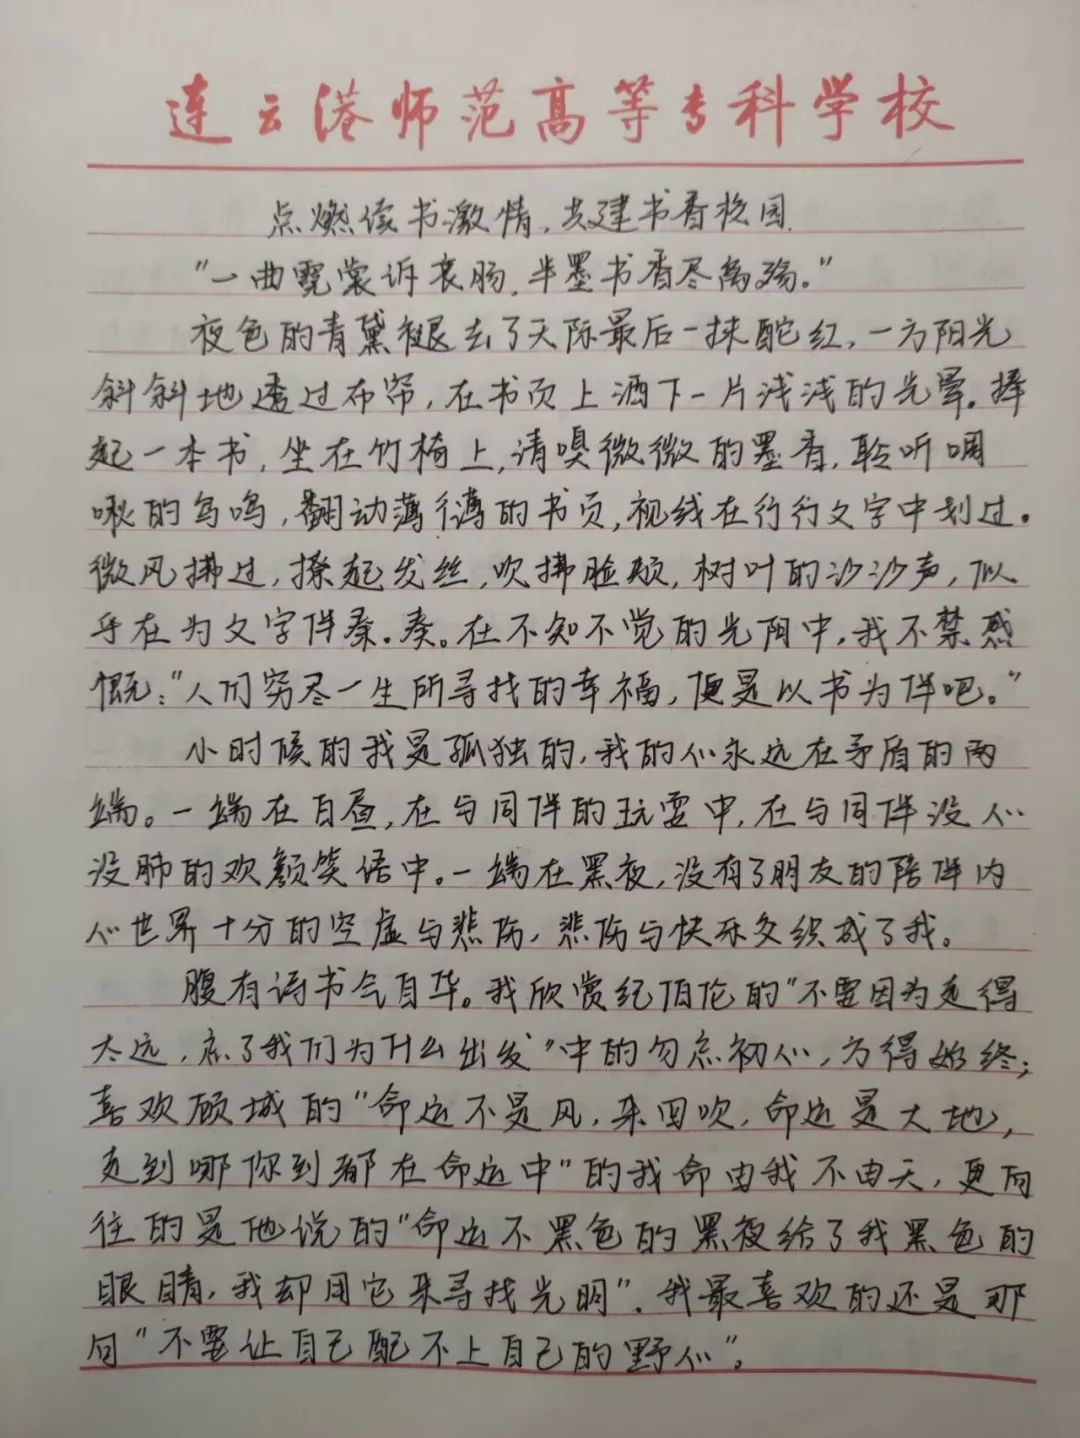 连云港师范高等专科学校
点燃读书激情,共建书香校园.
"一曲霓裳诉衷肠,半墨书香尽离殇。"
夜色的青黛褪去了天际最后一抹酡红,一方阳光
斜斜地透过布帘,在书页上洒下一片浅浅的光晕。捧
起一本书,坐在竹椅上,请嗅微微的墨香,聆听啁
啾的鸟鸣,翻动薄薄的书页,视线在行行文字中划过。
微风拂过,撩起发丝,吹拂脸颊,树叶的沙沙声,似
乎在为文字伴秦.奏。在不知不觉的光阴中,我不禁感
慨:"人们穷尽一生所寻找的幸福,便是以书为伴吧。"
小时候的我是孤独的,我的心永远在矛盾的两
端。一端在白昼,在与同伴的玩耍中,在与同伴没心
没肺的欢颜笑语中。一端在黑夜,没有了朋友的陪伴内
心世界十分的空虚与悲伤,悲伤与快乐交织成了我。
腹有诗书气自华。我欣赏纪伯伦的"不要因为走得
太远,忘了我们为什么出发"中的勿忘初心,方得始终;
喜欢顾城的"命运不是风,来回吹,命运是大地,
走到哪你到都在命运中"的我命由我不由天,更向
往的是他说的"命运不黑色的黑夜给了我黑色的
眼睛,我却用它来寻找光明".我最喜欢的还是那
句"不要让自己配不上自己的野心"。